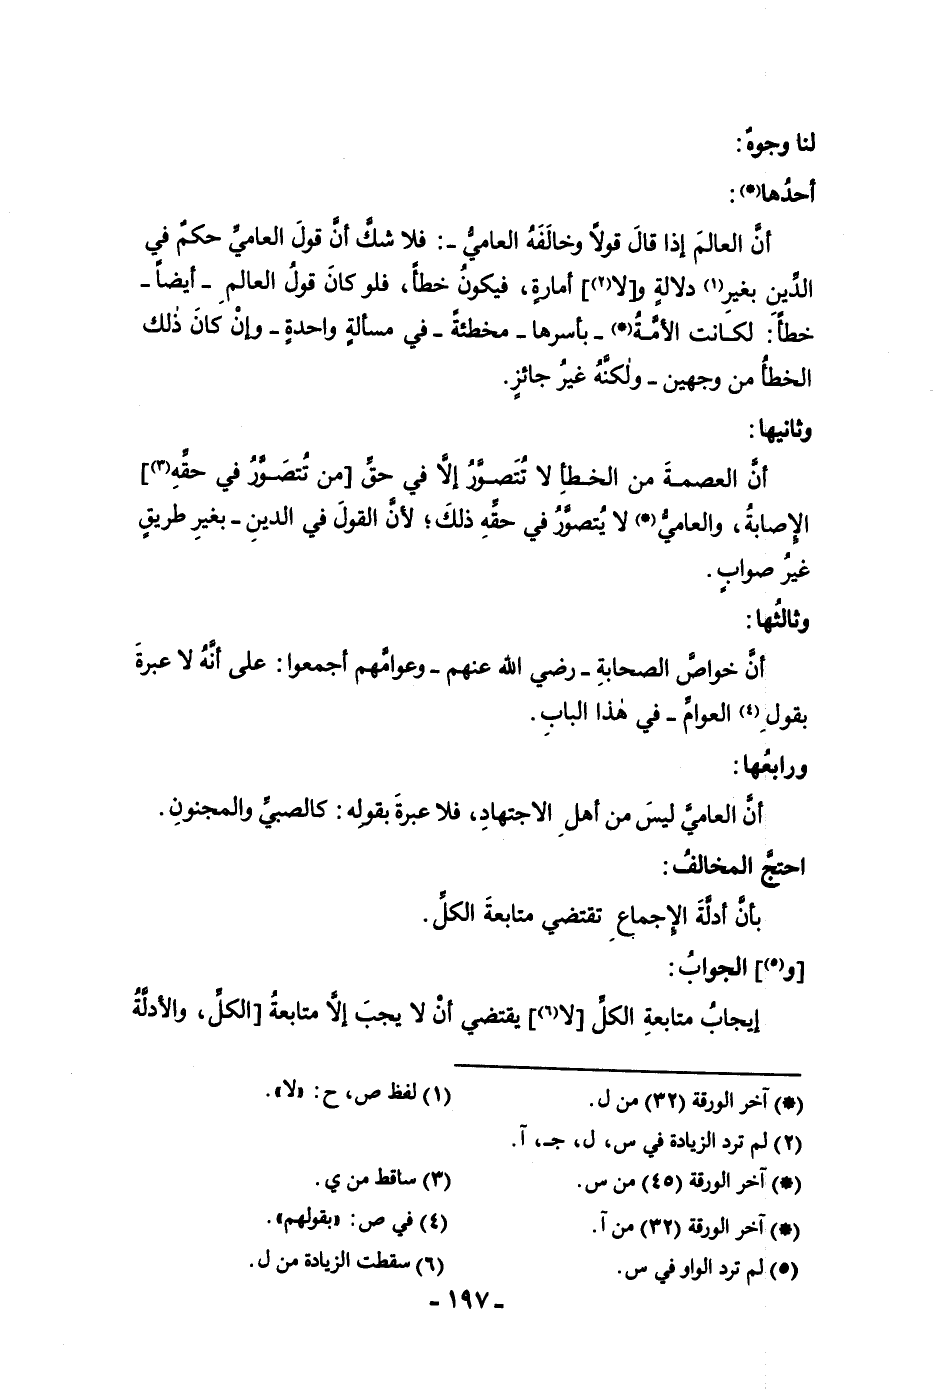 لنا وجوهٌ:
أحدُها(*):
أنَّ العالمَ إذا قالَ قولاً وخالَفَهُ العاميُّ ـ: فلا شكَّ أنَّ قولَ العاميِّ حكمٌ في
الدِّينِ بغيرِ(١) دلالةٍ و[لا(٢)] أمارةٍ، فيكونُ خطأً، فلو كانَ قولُ العالمِ ـ أيضاً ـ
خطأً: لكانت الأمَّةُ(*) ـ بأسرها ـ مخطئةً ـ في مسألةٍ واحدةٍ ـ وإنْ كانَ ذٰلك
الخطأُ من وجهين ـ ولٰكنَّهُ غيرُ جائزٍ.
وثانيها:
أنَّ العصمةَ من الخطأِ لا تُتَصوَّرُ إلَّا في حقِّ [من تُتصَوَّرُ في حقِّهِ(٣)]
الإِصابةُ، والعاميُّ(*) لا يُتصوَّرُ في حقِّهِ ذلكَ؛ لأنَّ القولَ في الدينِ ـ بغيرِ طريقٍ
غيرُ صوابٍ.
وثالثُها:
أنَّ خواصَّ الصحابةِ ـ رضي الله عنهم ـ وعوامَّهم أجمعوا: على أنَّهُ لا عبرةَ
بقولِ(٤) العوامِّ ـ في هٰذا البابِ.
ورابعُها:
أنَّ العاميَّ ليسَ من أهلِ الاجتهادِ، فلا عبرةَ بقولِه: كالصبيِّ والمجنونِ.
احتجَّ المخالفُ:
بأنَّ أدلَّةَ الإِجماعِ تقتضي متابعةَ الكلِّ.
[و(٥)] الجوابُ:
إيجابُ متابعةِ الكلِّ [لا(٦)] يقتضي أنْ لا يجبَ إلَّا متابعةُ [الكلِّ، والأدلَّةُ
(*) آخر الورقة (٣٢) من ل. (١) لفظ ص، ح: «لا».
(٢) لم ترد الزيادة في س، ل، جـ، آ.
(*) آخر الورقة (٤٥) من س. (٣) ساقط من ي.
(*) آخر الورقة (٣٢) من آ. (٤) في ص: «بقولهم».
(٥) لم ترد الواو في س. (٦) سقطت الزيادة من ل.
ـ ١٩٧ ـ